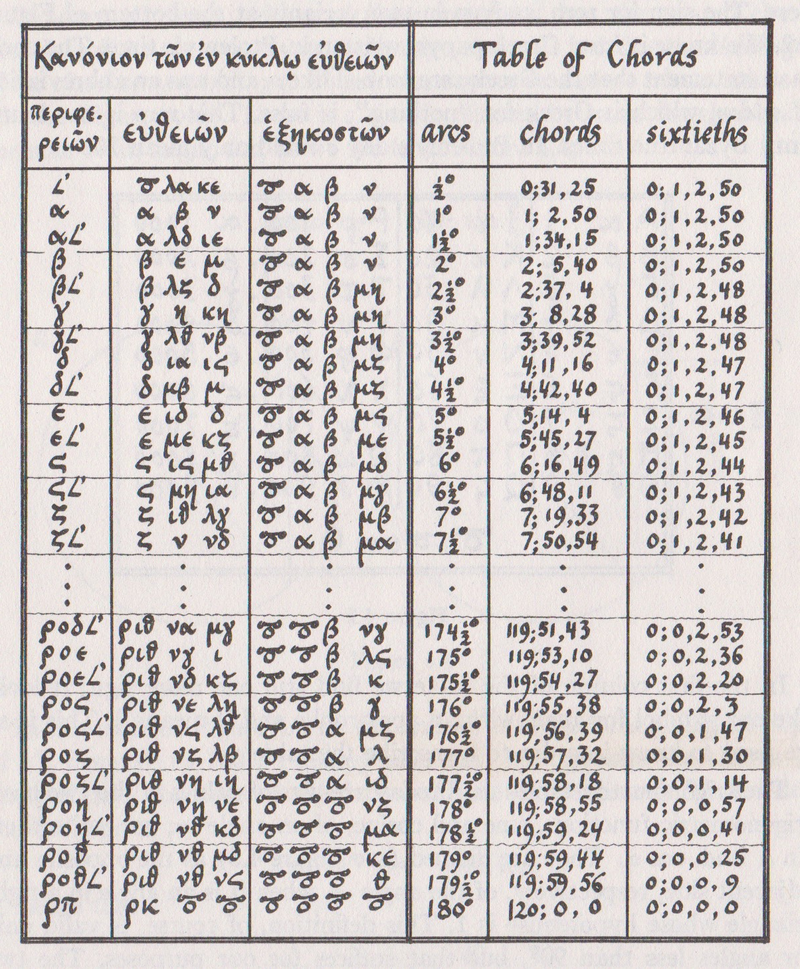 Κανόνιον τῶν ἐν κύκλῳ εὐθειῶν Table of Chords
περιφε-ρειῶν εὐθειῶν ἑξηκοστῶν arcs chords sixtieths
∠′ ō λα κε ō α β ν ½° 0;31,25 0;1,2,50
α α β ν ō α β ν 1° 1;2,50 0;1,2,50
α∠′ α λδ ιε ō α β ν 1½° 1;34,15 0;1,2,50
β β ε μ ō α β ν 2° 2;5,40 0;1,2,50
β∠′ β λζ δ ō α β μη 2½° 2;37,4 0;1,2,48
γ γ η κη ō α β μη 3° 3;8,28 0;1,2,48
γ∠′ γ λθ νβ ō α β μη 3½° 3;39,52 0;1,2,48
δ δ ια ις ō α β μζ 4° 4;11,16 0;1,2,47
δ∠′ δ μβ μ ō α β μζ 4½° 4;42,40 0;1,2,47
ε ε ιδ δ ō α β μς 5° 5;14,4 0;1,2,46
ε∠′ ε με κζ ō α β με 5½° 5;45,27 0;1,2,45
ς ς ις μθ ō α β μδ 6° 6;16,49 0;1,2,44
ς∠′ ς μη ια ō α β μγ 6½° 6;48,11 0;1,2,43
ζ ζ ιθ λγ ō α β μβ 7° 7;19,33 0;1,2,42
ζ∠′ ζ ν νδ ō α β μα 7½° 7;50,54 0;1,2,41
ροδ∠′ ριθ να μγ ō ō β νγ 174½° 119;51,43 0;0,2,53
ροε ριθ νγ ι ō ō β λς 175° 119;53,10 0;0,2,36
ροε∠′ ριθ νδ κζ ō ō β κ 175½° 119;54,27 0;0,2,20
ρος ριθ νε λη ō ō β γ 176° 119;55,38 0;0,2,3
ρος∠′ ριθ νς λθ ō ō α μζ 176½° 119;56,39 0;0,1,47
ροζ ριθ νζ λβ ō ō α λ 177° 119;57,32 0;0,1,30
ροζ∠′ ριθ νη ιη ō ō α ιδ 177½° 119;58,18 0;0,1,14
ροη ριθ νη νε ō ō ō νζ 178° 119;58,55 0;0,0,57
ροη∠′ ριθ νθ κδ ō ō ō μα 178½° 119;59,24 0;0,0,41
ροθ ριθ νθ μδ ō ō ō κε 179° 119;59,44 0;0,0,25
ροθ∠′ ριθ νθ νς ō ō ō θ 179½° 119;59,56 0;0,0,9
ρπ ρκ ō ō ō ō ō ō 180° 120;0,0 0;0,0,0